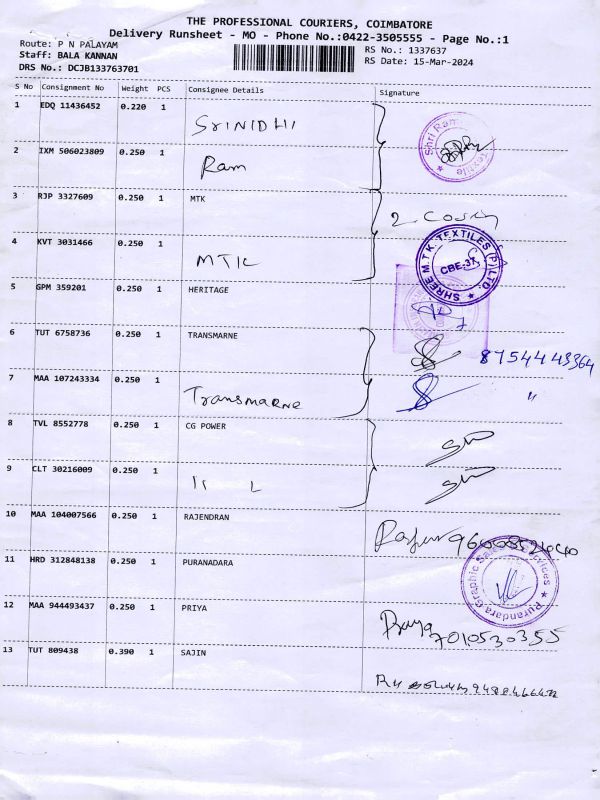 THE PROFESSIONAL COURIERS, COIMBATORE
Delivery Runsheet - MO - Phone No.:0422-3505555 - Page No.:1
Route: P N PALAYAM
Staff: BALA KANNAN
DRS No.: DCJB133763701
RS No.: 1337637
RS Date: 15-Mar-2024
S No Consignment No Weight PCS Consignee Details Signature
1 EDQ 11436452 0.220 1 SrINIDHI
2 IXM 506023809 0.250 1 Ram
3 RJP 3327609 0.250 1 MTK
4 KVT 3031466 0.250 1 MTK
SHREE M.T.K. TEXTILES (P) LTD.
CBE-37
5 GPM 359201 0.250 1 HERITAGE
6 TUT 6758736 0.250 1 TRANSMARNE 8754443364
7 MAA 107243334 0.250 1 Transmarne "
8 TVL 8552778 0.250 1 CG POWER
9 CLT 30216009 0.250 1
10 MAA 104007566 0.250 1 RAJENDRAN
11 HRD 312848138 0.250 1 PURANADARA
Purandara Graphic
12 MAA 944493437 0.250 1 PRIYA Priya 7010530355
13 TUT 809438 0.390 1 SAJIN